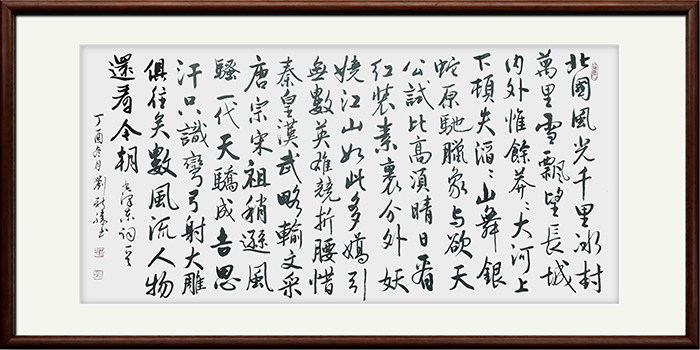 北國風光千里冰封
萬里雪飄望長城
内外惟餘莽〻大河上
下頓失滔〻山舞銀
蛇原馳臘象与欲天
公試比高須晴日看
红裝素裹分外妖
嬈江山如此多嬌引
無數英雄競折腰惜
秦皇漢武略輸文采
唐宗宋祖稍遜風
騷一代天驕成吉思
汗只識彎弓射大雕
俱往矣數風流人物
還看今朝 毛澤東詞
丁酉冬月劉